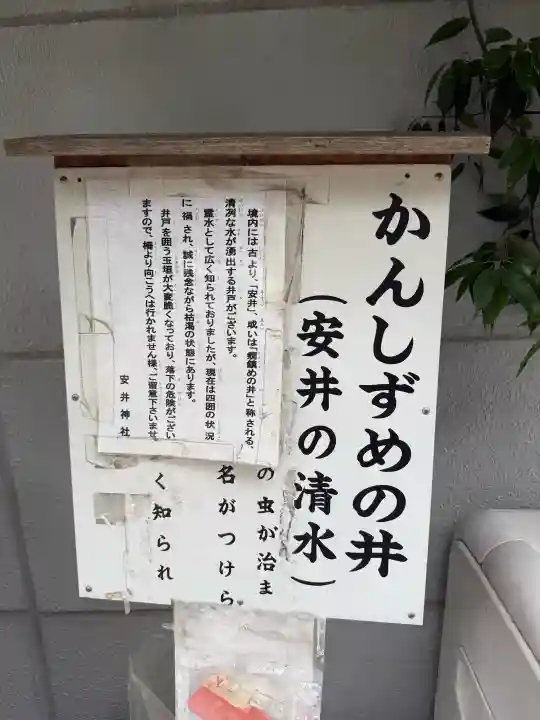 かんしずめの井
(安井の清水)
の虫が治ま
名がつけら
く知られ
境内には古より、「安井」、或いは「癇鎮めの井」と称される、
清冽な水が湧出する井戸がございます。
霊水として広く知られておりましたが、現在は四囲の状況
に禍され、誠に残念ながら枯渇の状態にあります。
井戸を囲う玉垣が大変脆くなっており、落下の危険がござい
ますので、柵より向こうへは行かれません様、ご留意下さいませ。
安井神社